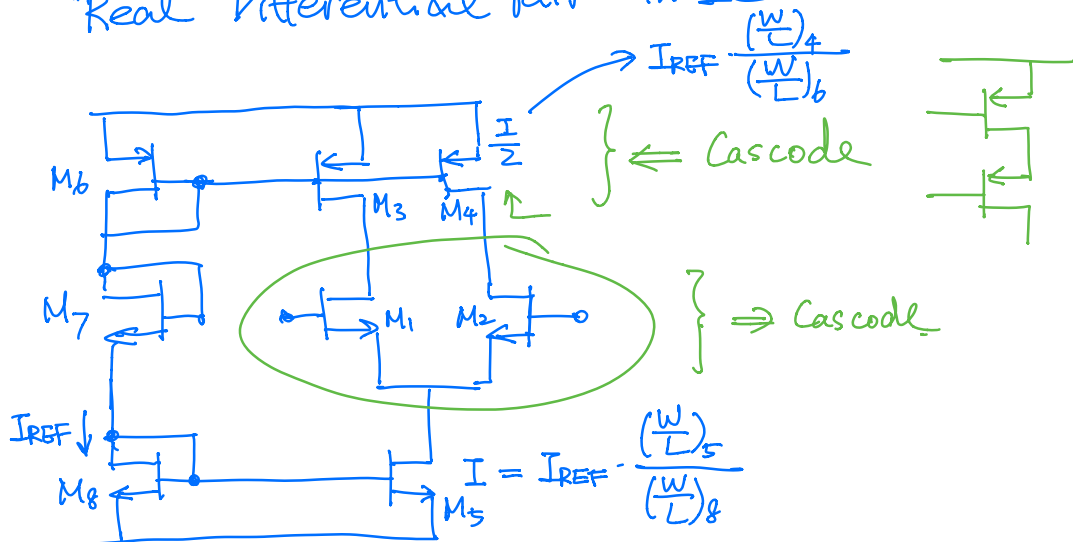 Real Differential pair in
I_REF · (W/L)_4 / (W/L)_6
I/2
⇐ Cascode
M6
M3
M4
M7
M1
M2
⇒ Cascode
I_REF ↓
I = I_REF · (W/L)_5 / (W/L)_8
M8
M5